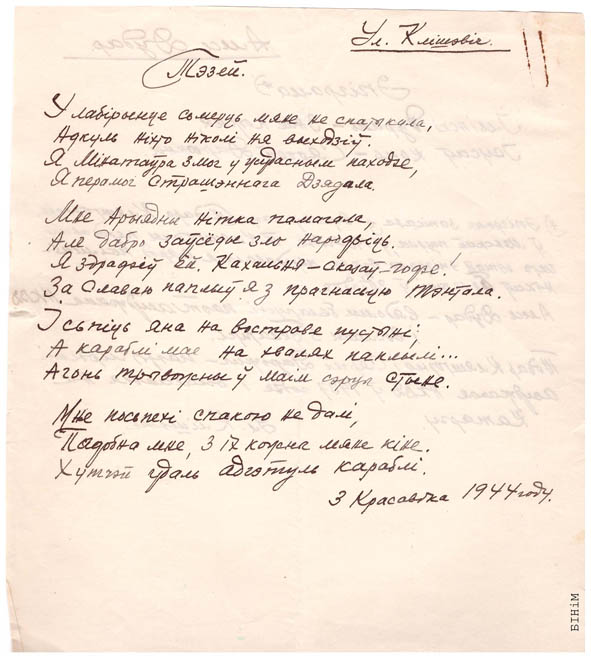 Ул. Клішэвіч.
Тэзей.
У лабірынце сьмерць мяне не спаткала,
Адкуль ніхто ніколі ня выходзіў.
Я Мінатаўра змог у удасным паходзе,
Я перамог Страшэннага Дзядала.
Мне Арыядны нітка памагала,
Але дабро заўсёды зло народзіць.
Я здрадзіў ёй. Каханьня – сказаў – годзе!
За Славаю паплыў я з прагнасьцю Тэнтала.
І сьпіць яна на востраве пустыні,
А караблі мае на хвалях паплылі...
Агонь трывожны ў маім сэрцы стыне.
Мне посьпехі спакою не далі,
Падобна мне, з іх кожна мяне кіне.
Хутчэй удаль адгэтуль караблі.
3 Красавіка 1944 году.
БІНіМ